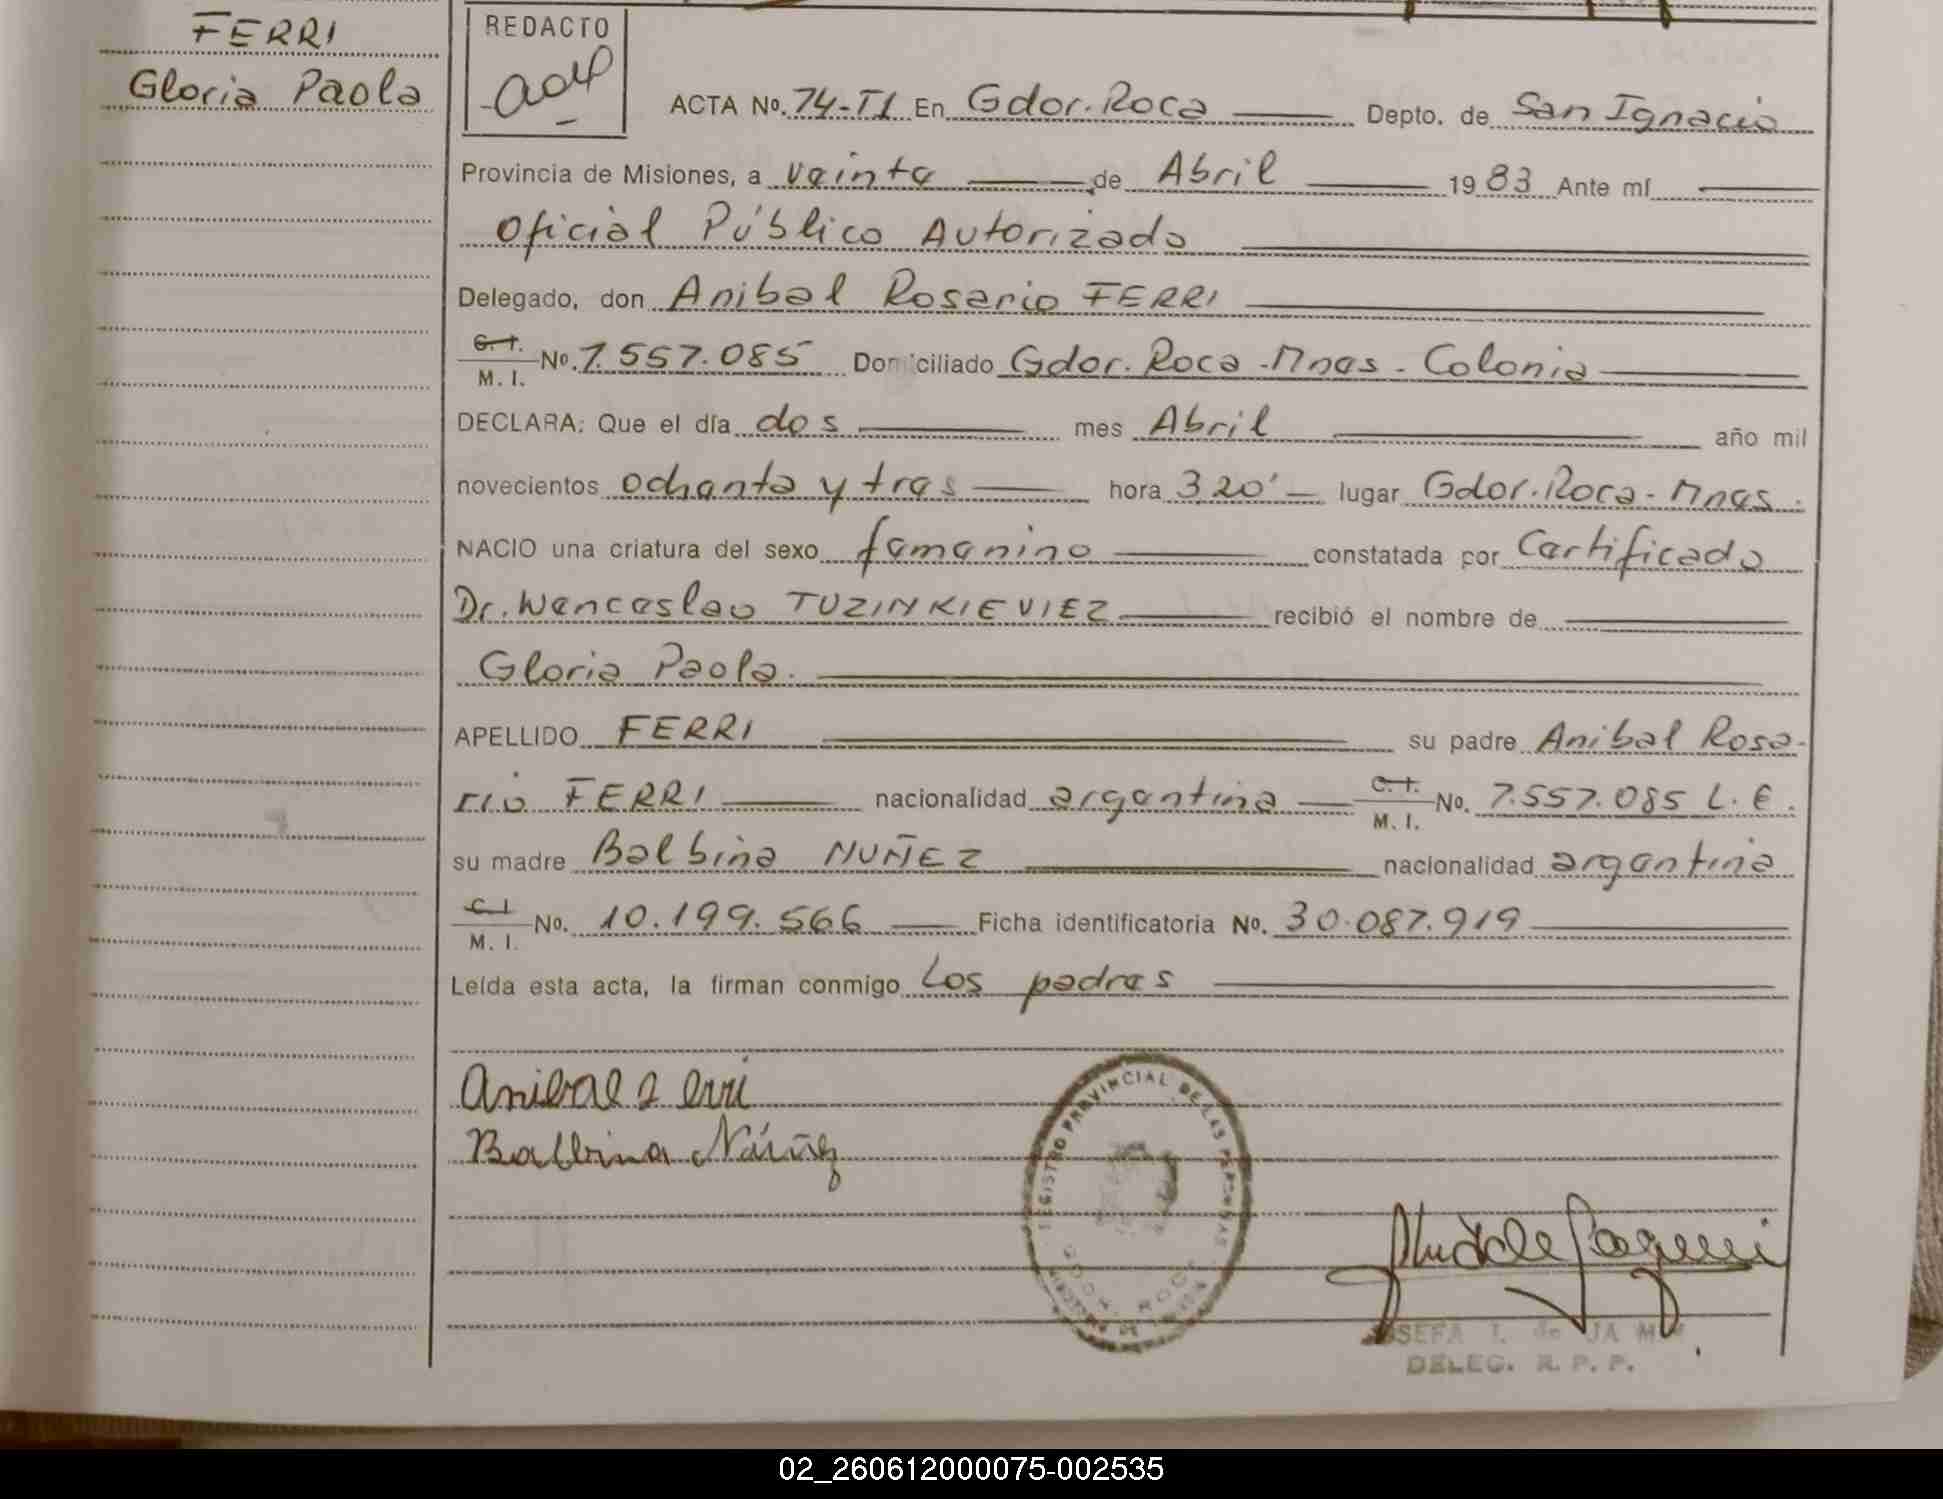 FERRI
Gloria Paola
REDACTO
ACTA No. 74-T1 En Gdor. Roca Depto. de San Ignacio
Provincia de Misiones, a veinte de Abril 1983 Ante mí
Oficial Público Autorizado
Delegado, don Anibal Rosario FERRI
C.I. M.I. No. 7.557.085 Domiciliado Gdor. Roca - Mnes - Colonia
DECLARA: Que el día dos mes Abril año mil
novecientos ochenta y tres hora 3,20' lugar Gdor. Roca - Mnes.
NACIO una criatura del sexo femenino constatada por Certificado
Dr. Wenceslao TUZINKIEVIEZ recibió el nombre de
Gloria Paola.
APELLIDO FERRI su padre Anibal Rosa-
rio FERRI nacionalidad argentina C.I. M.I. No. 7.557.085 L.E.
su madre Balbina NUÑEZ nacionalidad argentina
C.I. M.I. No. 10.199.566 Ficha identificatoria No. 30.087.919
Leída esta acta, la firman conmigo Los padres
Anibal Ferri
Balbina Núñez
REGISTRO PROVINCIAL DE LAS PERSONAS
GDOR. ROCA
DELEG. R. P. P.
02_260612000075-002535